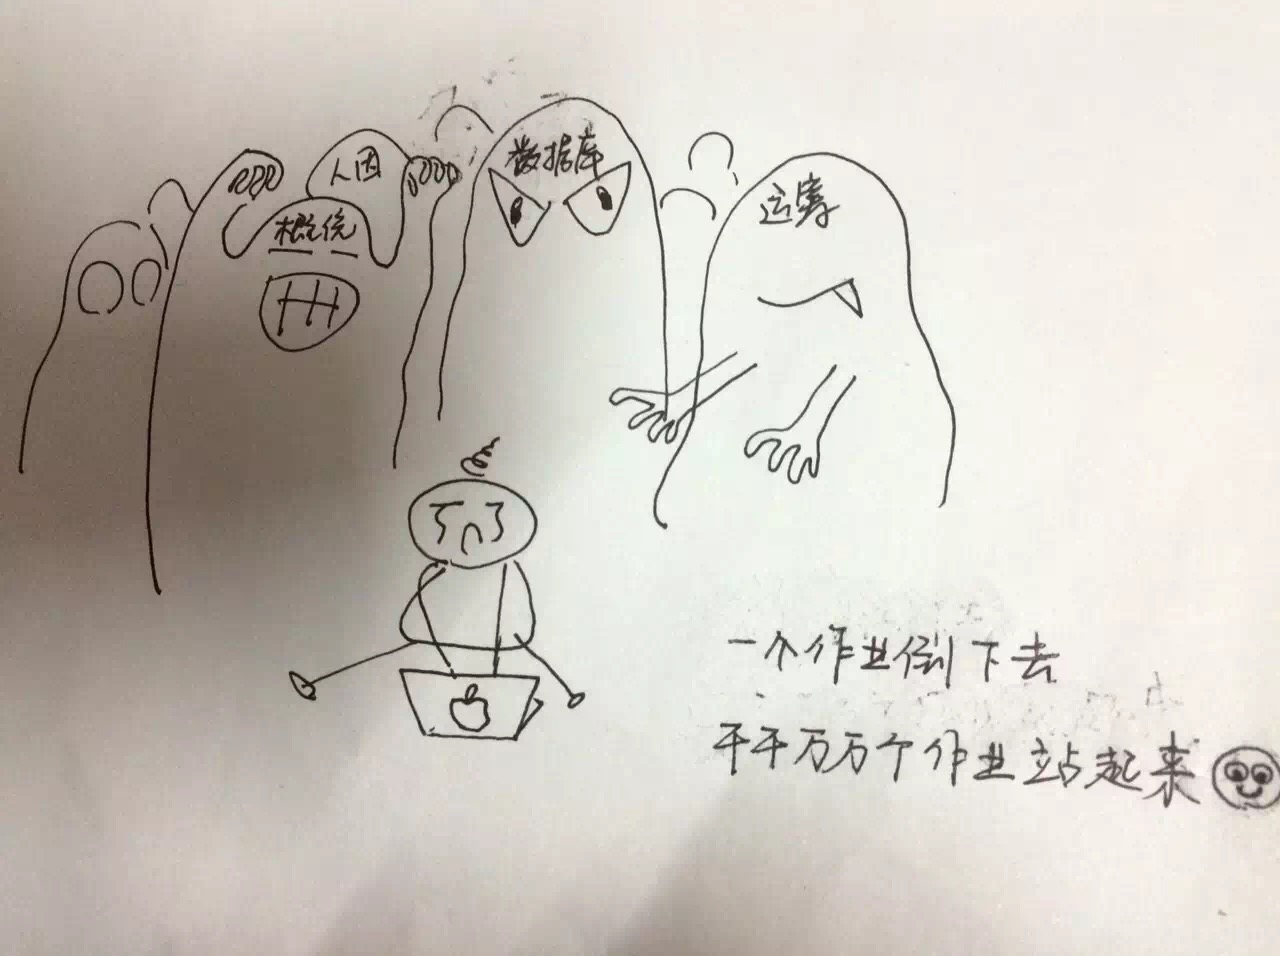 人因
概统
数据库
运筹
一个作业倒下去
千千万万个作业站起来